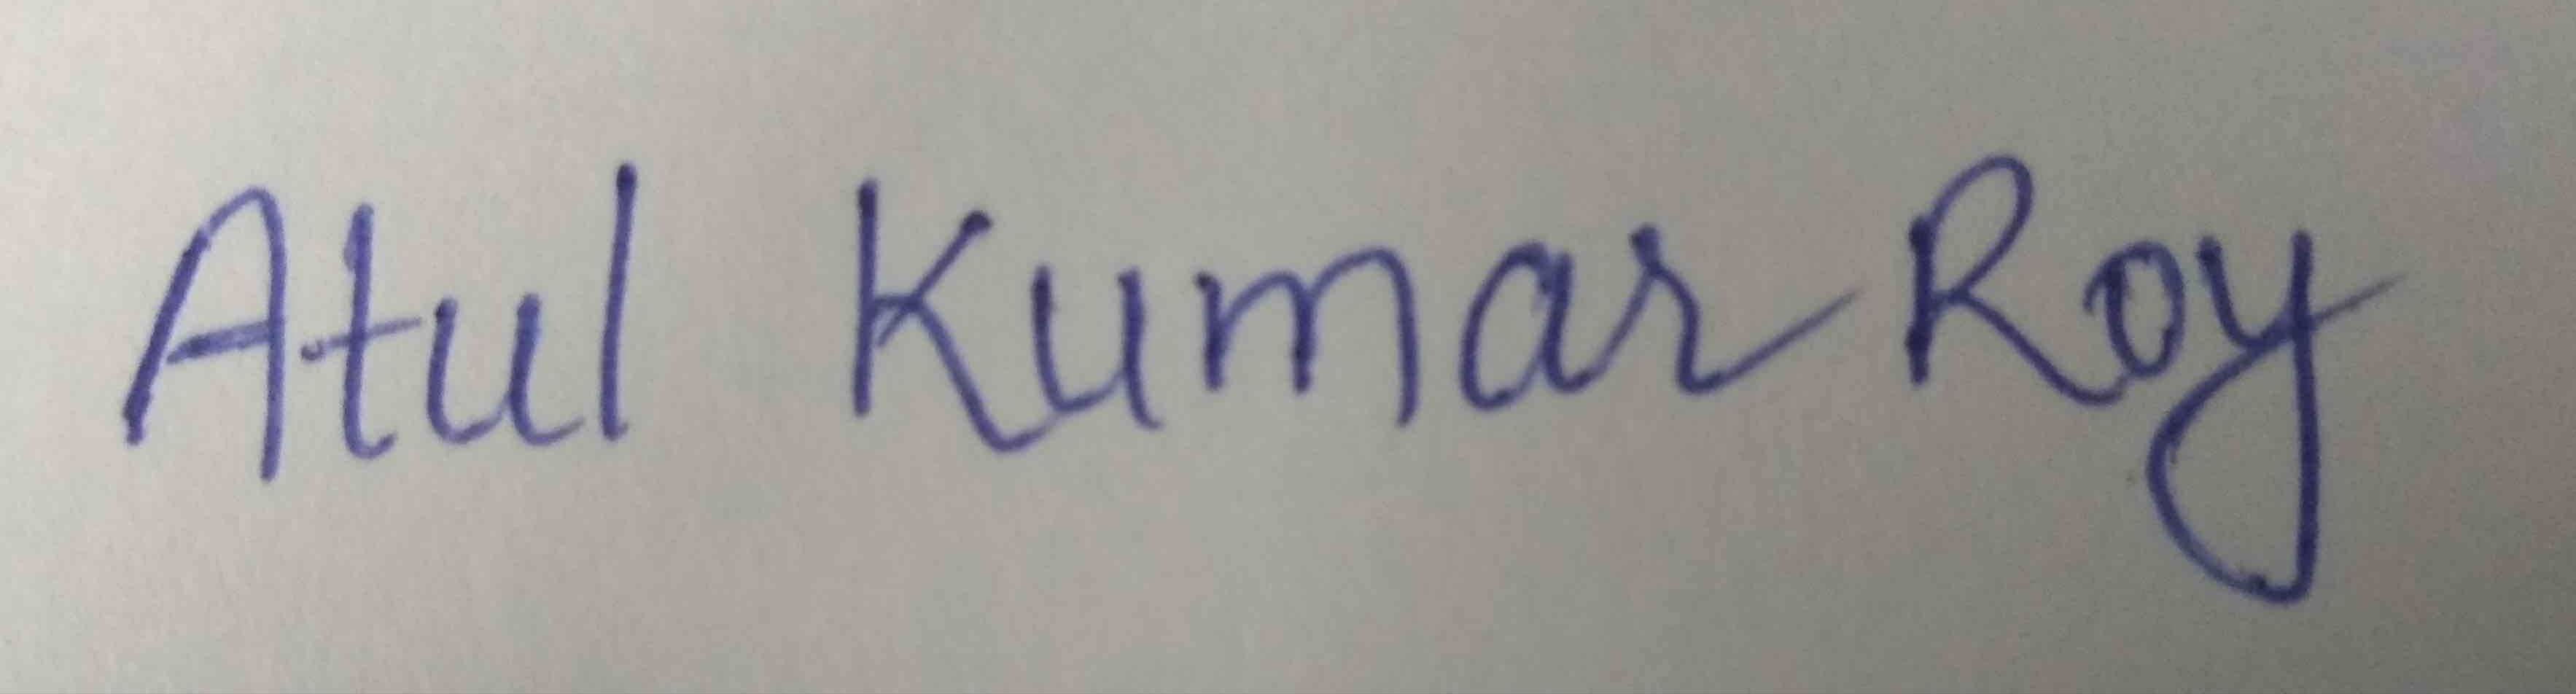 Atul Kumar Roy